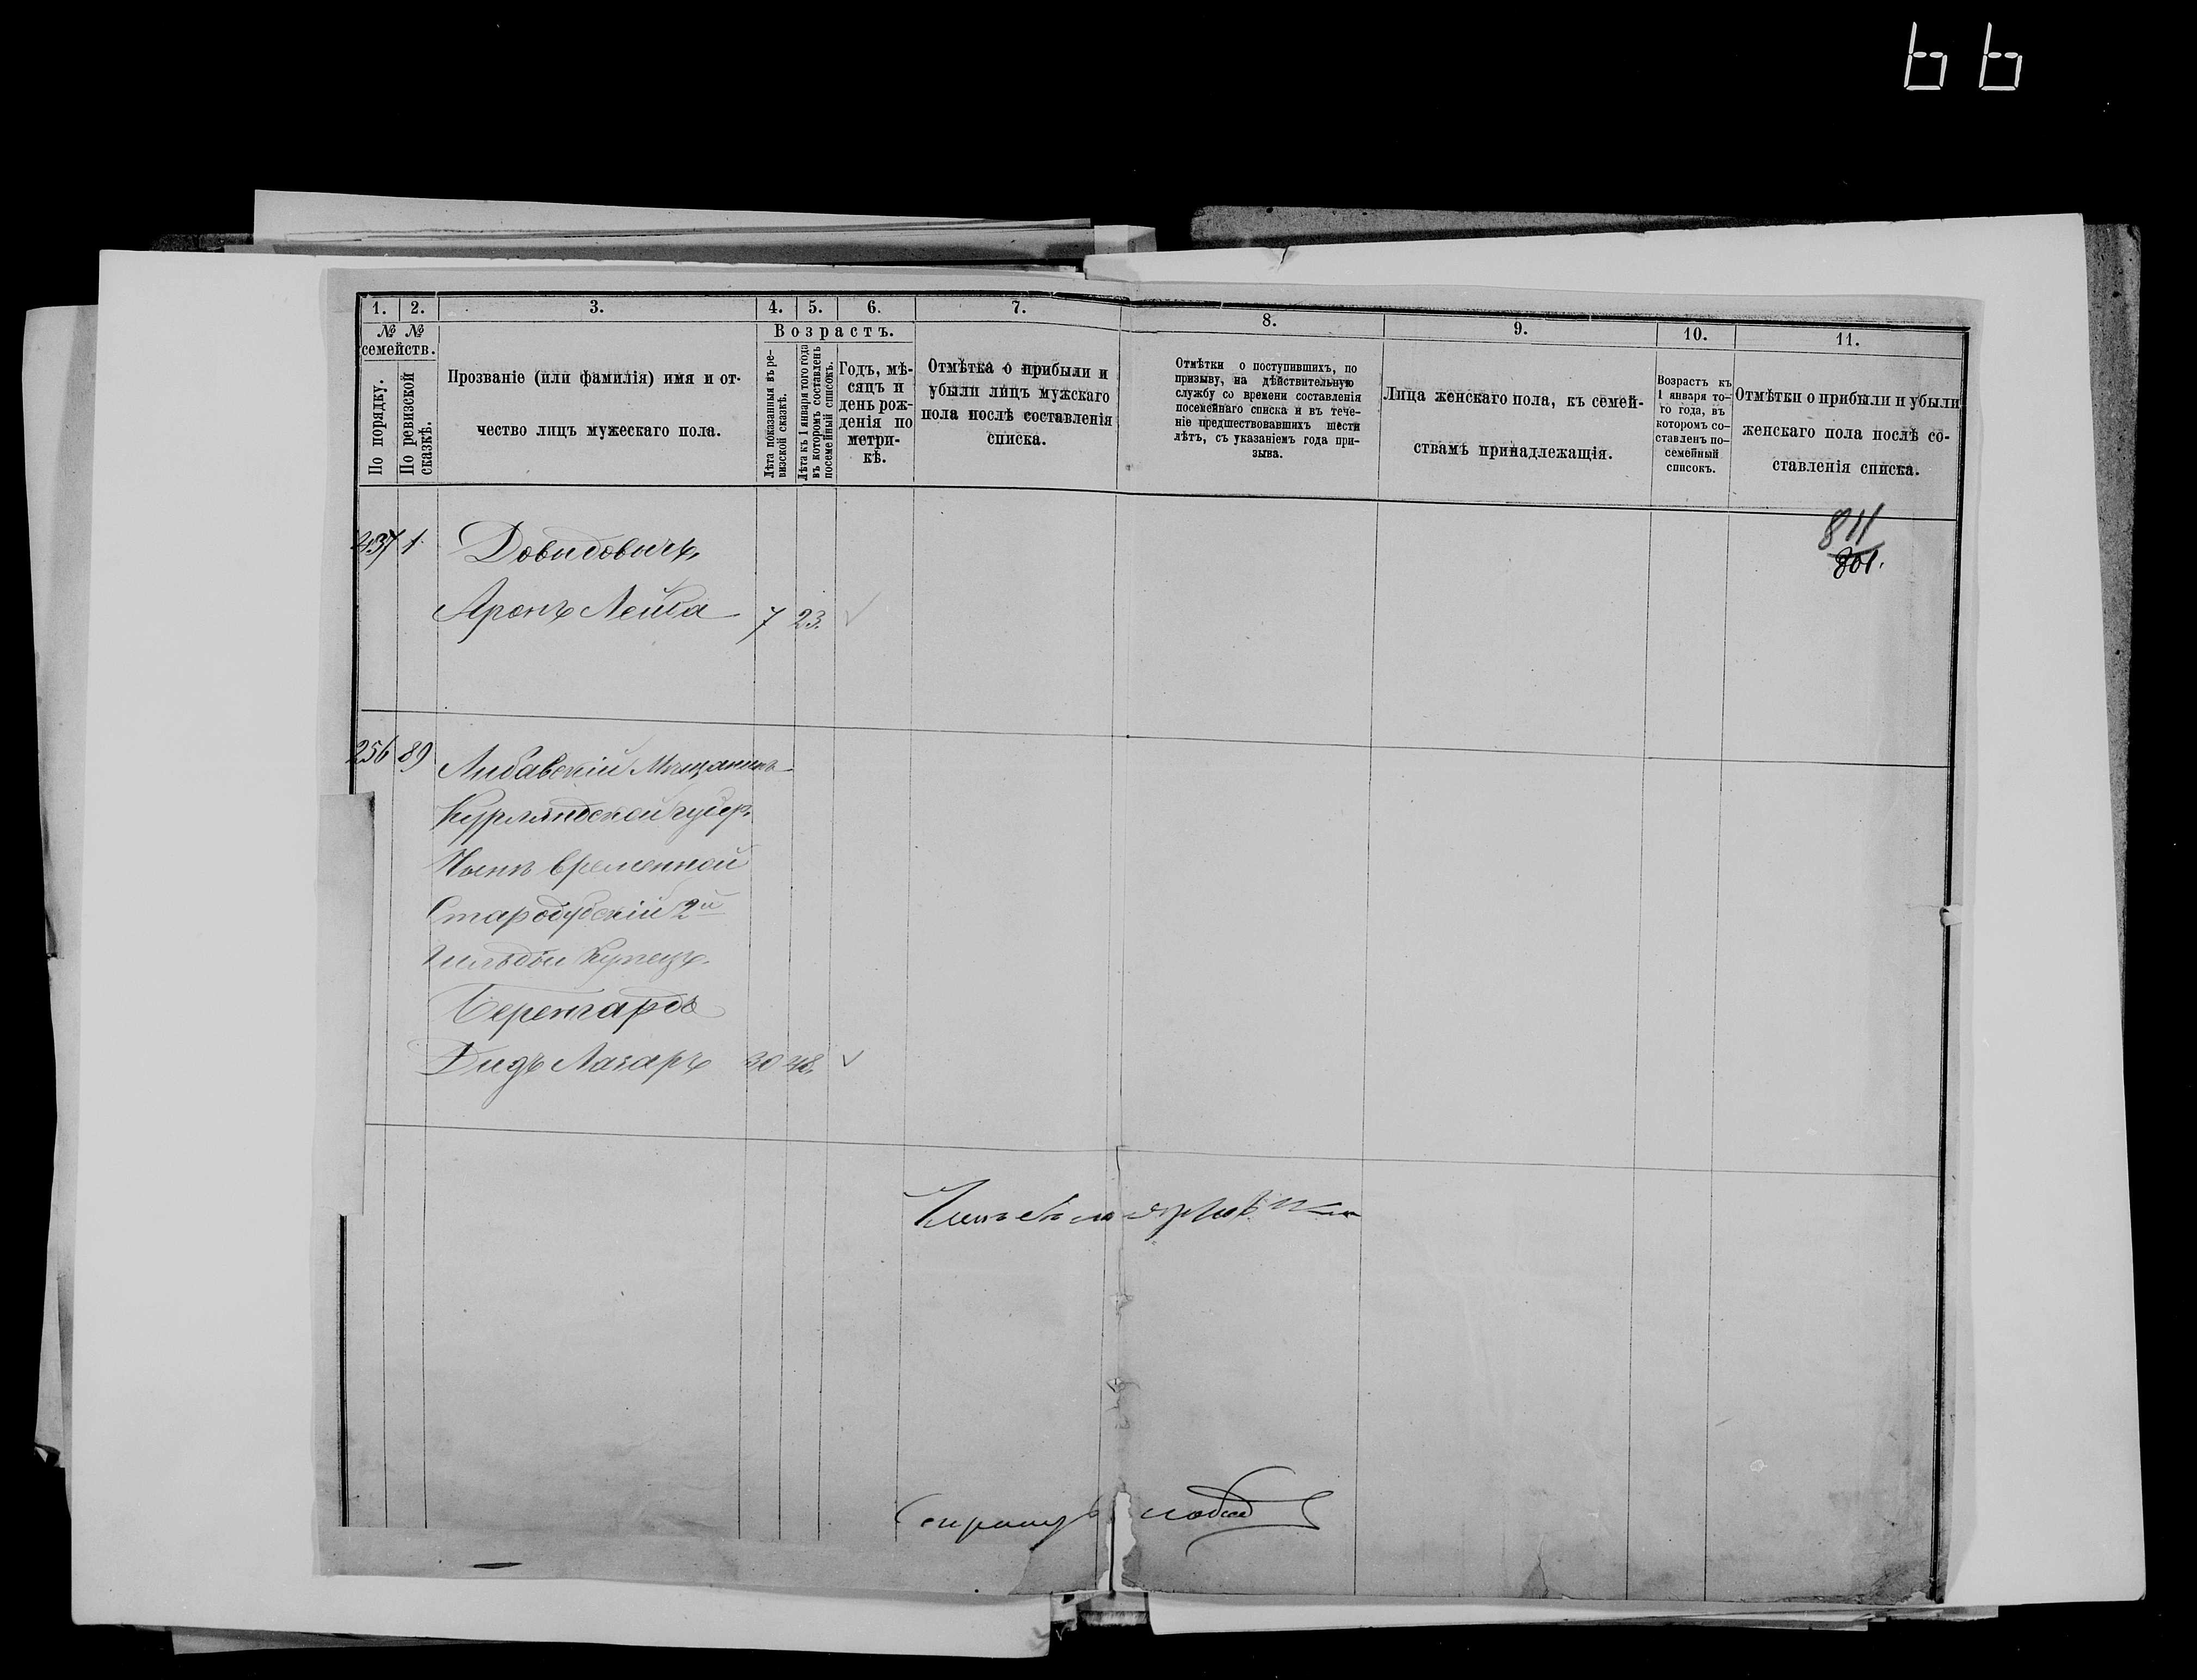 66
1. 2. 3. 4. 5. 6. 7. 8. 9. 10. 11.
№ №
семействъ.
По порядку.
По ревизской
сказкѣ.
Прозваніе (или фамилія) имя и от-
чество лицъ мужескаго пола.
Возрастъ.
Лѣта показанныя въ ре-
визской сказкѣ.
Лѣта къ 1 января того года
въ которомъ составленъ
посемейный списокъ.
Годъ, мѣ-
сяцъ и
день рож-
денія по
метри-
кѣ.
Отмѣтка о прибыли и
убыли лицъ мужскаго
пола послѣ составленія
списка.
Отмѣтки о поступившихъ, по
призыву, на дѣйствительную
службу со времени составленія
посемейнаго списка и въ тече-
ніе предшествовавшихъ шести
лѣтъ, съ указаніемъ года при-
зыва.
Лица женскаго пола, къ семей-
ствамъ принадлежащія.
Возрастъ къ
1 января то-
го года, въ
которомъ со-
ставленъ по-
семейный
списокъ.
Отмѣтки о прибыли и убыли
женскаго пола послѣ со-
ставленія списка.
811
801.
237 1 Довидовичъ
Аронъ Лейба 7 23.
256 89 Либавскій Мѣщанинъ
Курляндской губер.
Нынѣ временной
Стародубскій 2й
Гильдіи Купецъ.
Беренгардъ
Лазаръ 30 48.